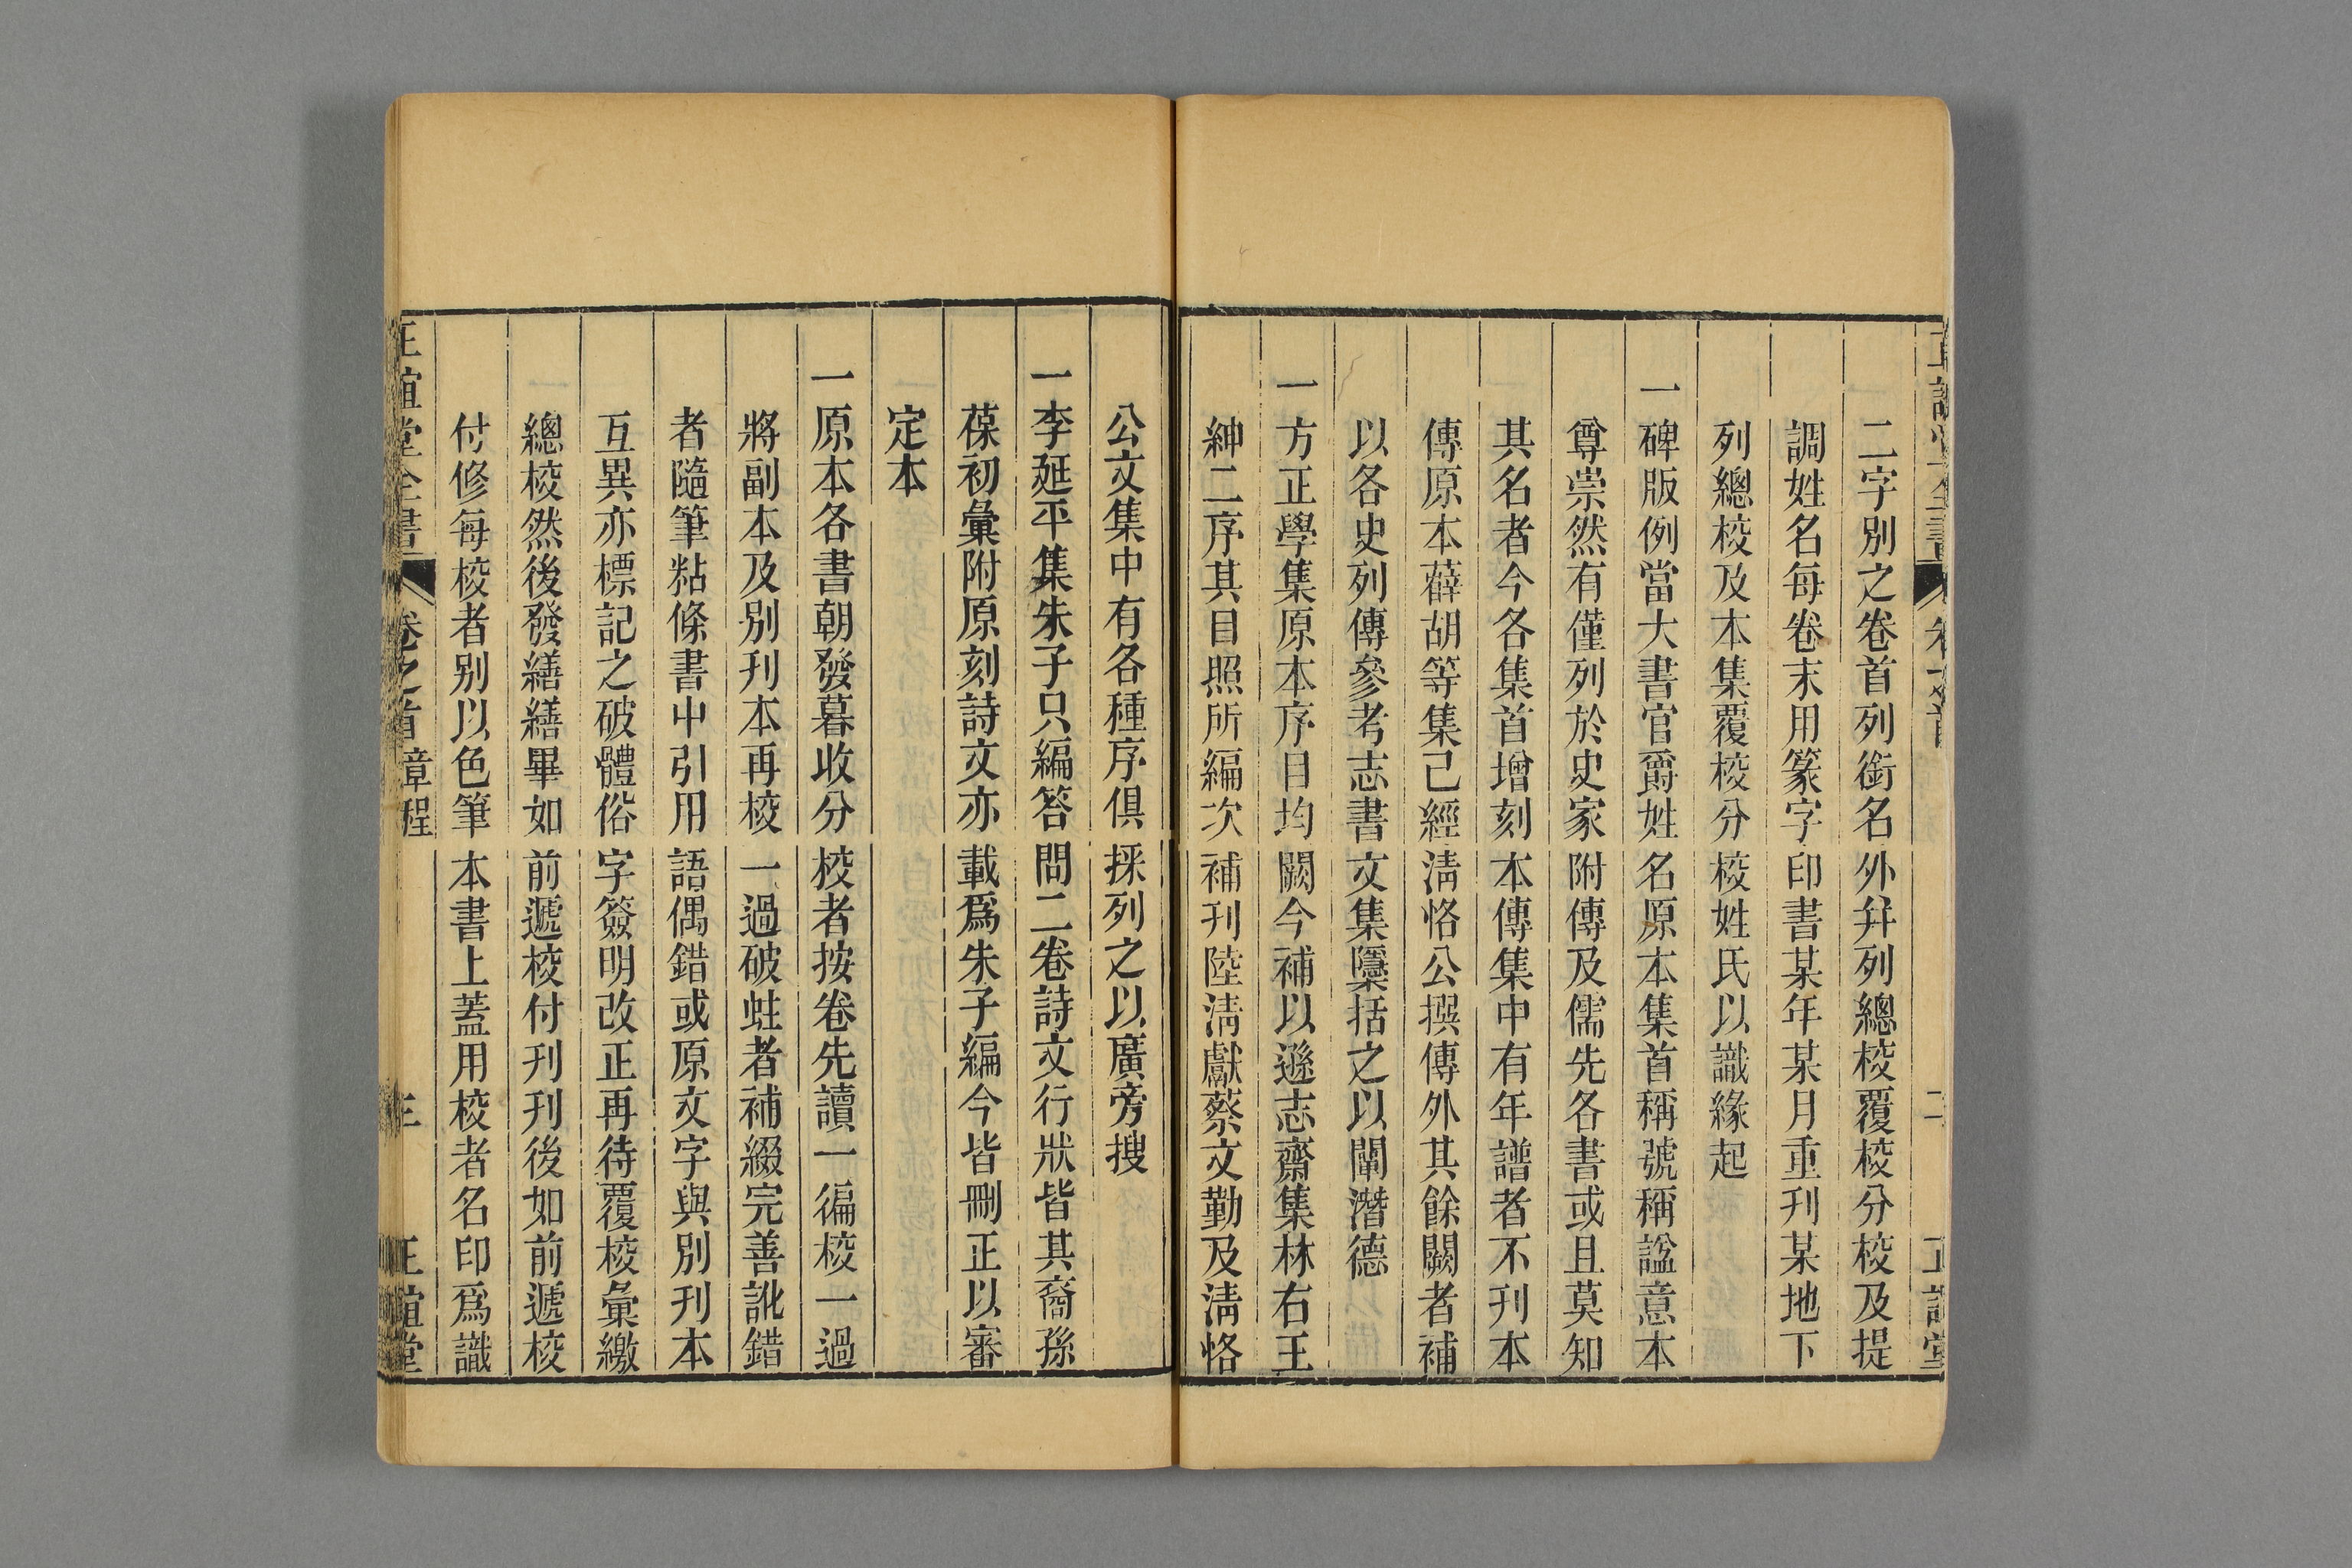 二字別之卷首列銜名外并列總校覆校分校及提
調姓名每卷末用篆字印書某年某月重刊某地下
列總校及本集覆校分校姓氏以識緣起
一碑版例當大書官爵姓名原本集首稱號稱諡意本
尊崇然有僅列於史家附傳及儒先各書或且莫知
其名者今各集首增刻本傳集中有年譜者不刊本
傳原本薛胡等集己經淸恪公撰傳外其餘闕者補
以各史列傳參考志書文集隱括之以闡潛德
一方正學集原本序目均闕今補以遜志齋集林右王
紳二序其目照所編次補刊陸淸獻蔡文勤及淸恪
公文集中有各種序俱採列之以廣旁搜
一李延平集朱子只編答問二卷詩文行狀皆其裔孫
葆初彙附原刻詩文亦載爲朱子編今皆刪正以審
定本
一原本各書朝發暮收分校者按卷先讀一徧校一過
將副本及別刊本再校一過破蛀者補綴完善訛錯
者隨筆粘條書中引用語偶錯或原文字與別刊本
互異亦標記之破體俗字簽明改正再待覆校彙繳
總校然後發繕繕畢如前遞校付刊刊後如前遞校
付修每校者別以色筆本書上蓋用校者名印爲識
正誼堂全書 卷之首章程 三 正誼堂